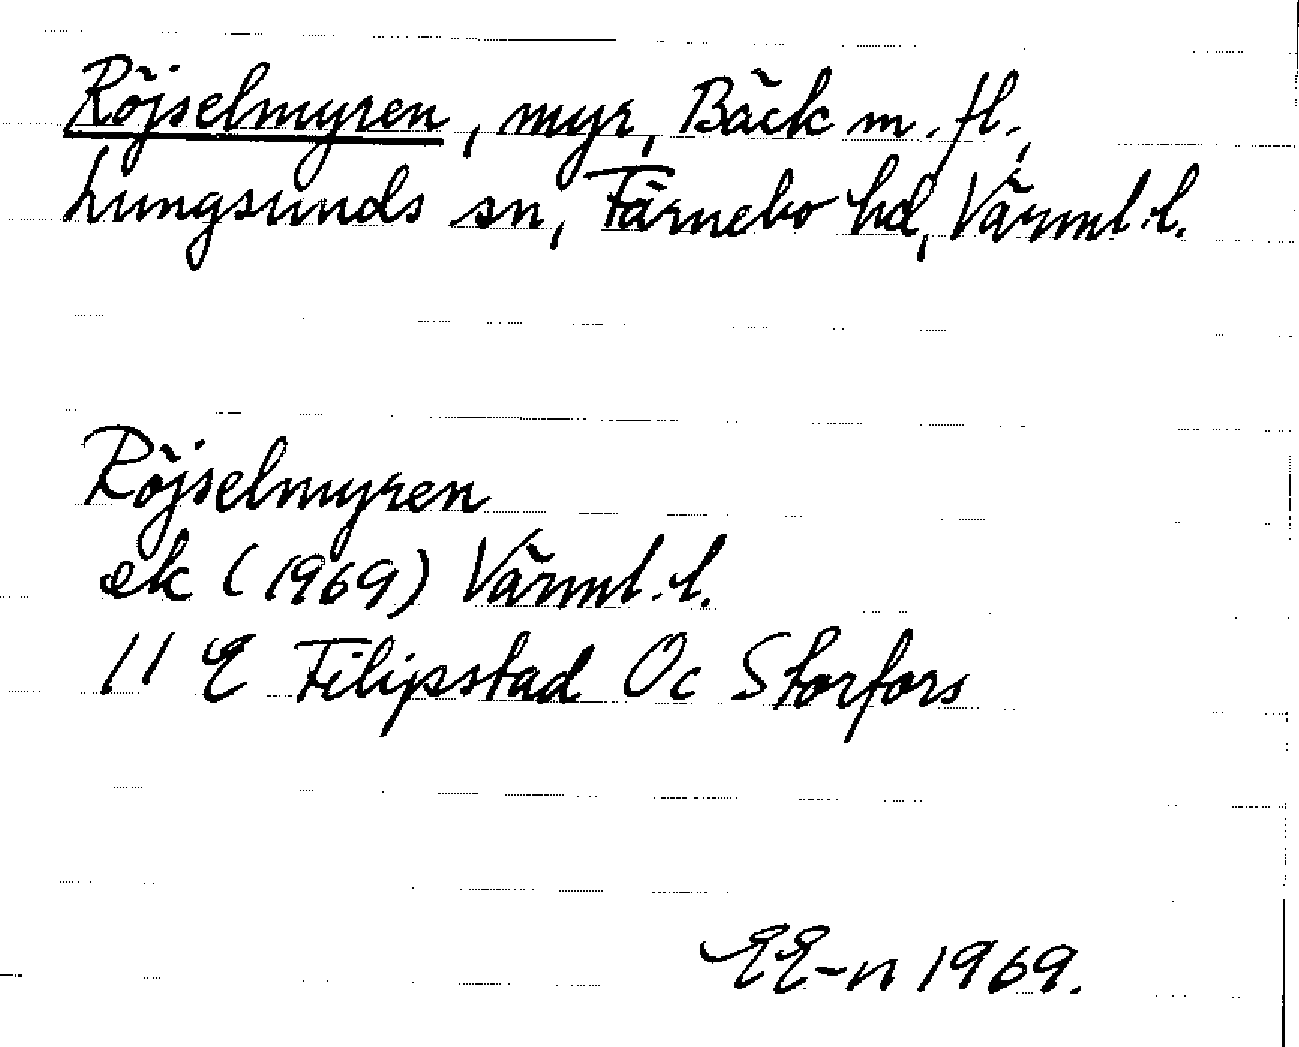 Röjselmyren, myr, Bäck m. fl.,
Lungsunds sn, Färnebo hd, Värml. l.
Röjselmyren
ek (1969) Värml. l.
11 E Filipstad Oc Storfors
EE-n 1969.